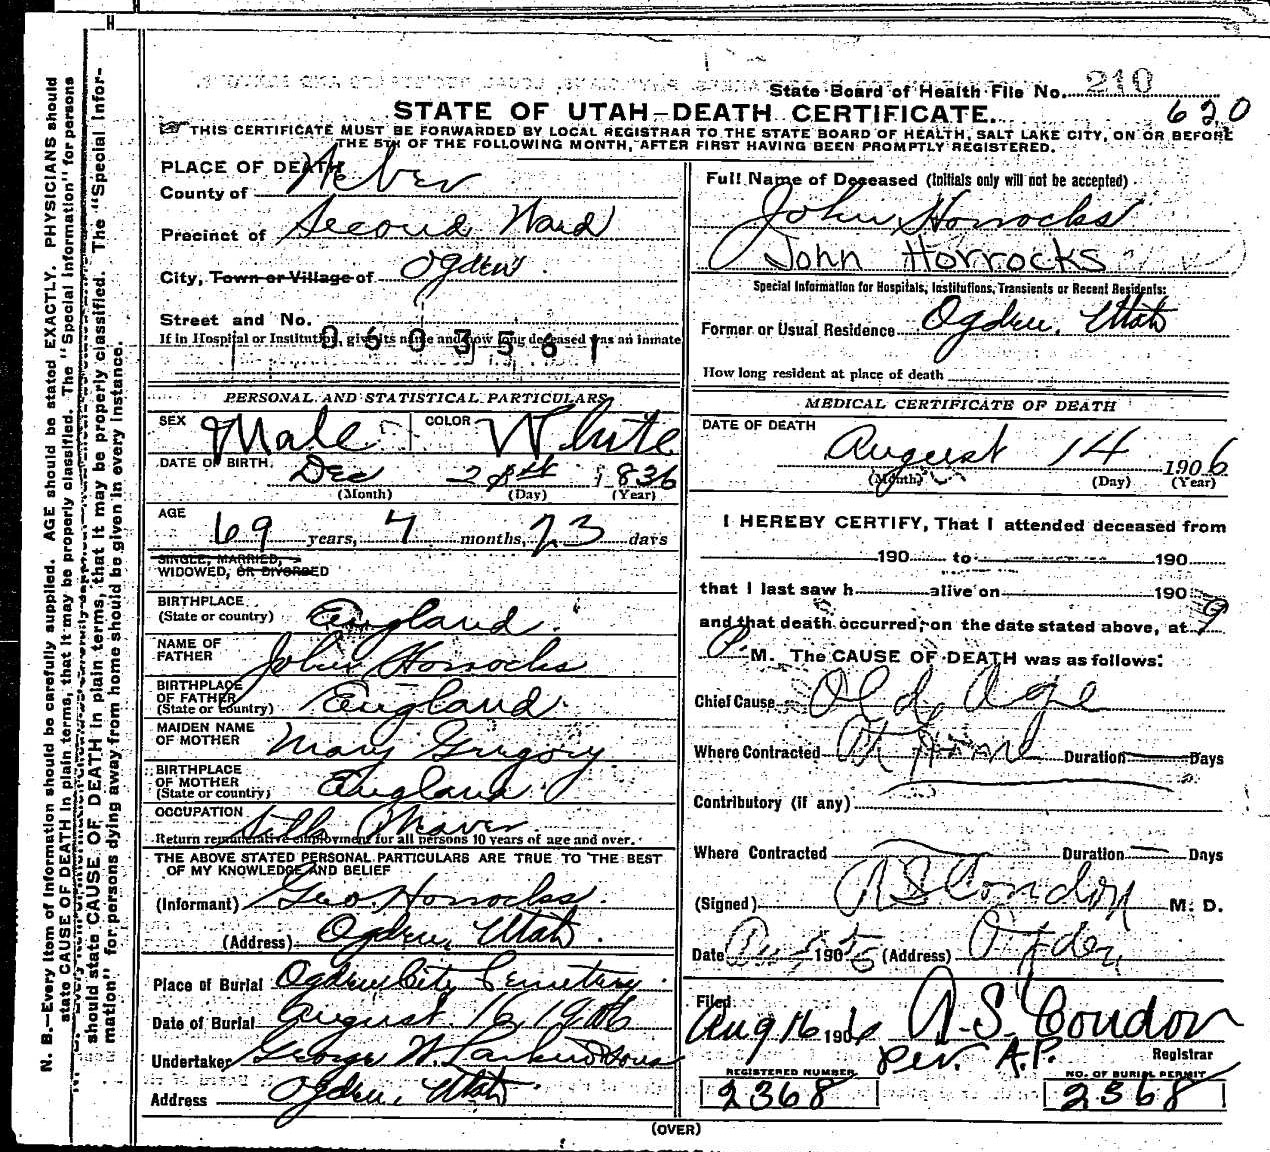 State Board of Health File No. 210
620
STATE OF UTAH—DEATH CERTIFICATE.
THIS CERTIFICATE MUST BE FORWARDED BY LOCAL REGISTRAR TO THE STATE BOARD OF HEALTH, SALT LAKE CITY, ON OR BEFORE
THE 5TH OF THE FOLLOWING MONTH, AFTER FIRST HAVING BEEN PROMPTLY REGISTERED.
PLACE OF DEATH
County of Weber
Precinct of Second Ward
City, Town or Village of Ogden
Street and No.
If in Hospital or Institution, give its name and how long deceased was an inmate
0603561
PERSONAL AND STATISTICAL PARTICULARS
SEX Male COLOR White
DATE OF BIRTH Dec 21st 1836
(Month) (Day) (Year)
AGE
69 years, 7 months, 23 days
SINGLE, MARRIED,
WIDOWED, OR DIVORCED
BIRTHPLACE
(State or country) England
NAME OF
FATHER John Horrocks
BIRTHPLACE
OF FATHER
(State or country) England
MAIDEN NAME
OF MOTHER Mary Gregory
BIRTHPLACE
OF MOTHER
(State or country) England
OCCUPATION
Return remunerative employment for all persons 10 years of age and over.
THE ABOVE STATED PERSONAL PARTICULARS ARE TRUE TO THE BEST
OF MY KNOWLEDGE AND BELIEF
(Informant) Geo. Horrocks.
(Address) Ogden, Utah.
Place of Burial Ogden City Cemetery.
Date of Burial August 16, 1906
Undertaker George W. Larkin & Sons
Address Ogden, Utah.
Full Name of Deceased (Initials only will not be accepted)
John Horrocks
John Horrocks
Special Information for Hospitals, Institutions, Transients or Recent Residents:
Former or Usual Residence Ogden, Utah
How long resident at place of death
MEDICAL CERTIFICATE OF DEATH
DATE OF DEATH
August 14 1906
(Month) (Day) (Year)
I HEREBY CERTIFY, That I attended deceased from
190 to 190
that I last saw h alive on 190
and that death occurred, on the date stated above, at 9
P. M. The CAUSE OF DEATH was as follows:
Chief Cause Old Age
Where Contracted At Home Duration Days
Contributory (if any)
Where Contracted Duration Days
(Signed) A S Condon M. D.
Date 190 (Address) Ogden
Filed
Aug 16 1906 A. S. Condon
per. A.P. Registrar
REGISTERED NUMBER
2368
NO. OF BURIAL PERMIT
2368
(OVER)
N. B.—Every item of information should be carefully supplied. AGE should be stated EXACTLY. PHYSICIANS should
state CAUSE OF DEATH in plain terms, that it may be properly classified. The "Special Information" for persons
should state CAUSE OF DEATH in plain terms, that it may be properly classified. The "Special Infor-
mation" for persons dying away from home should be given in every instance.